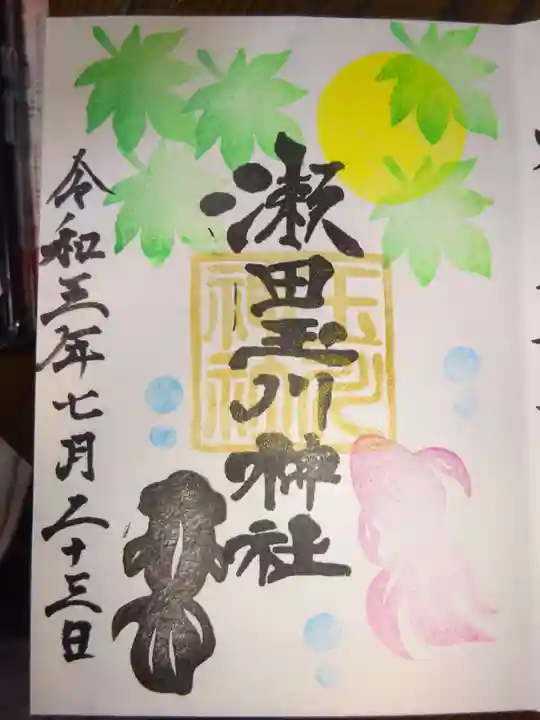 瀬田玉川神社
玉川
神社
令和三年七月二十三日